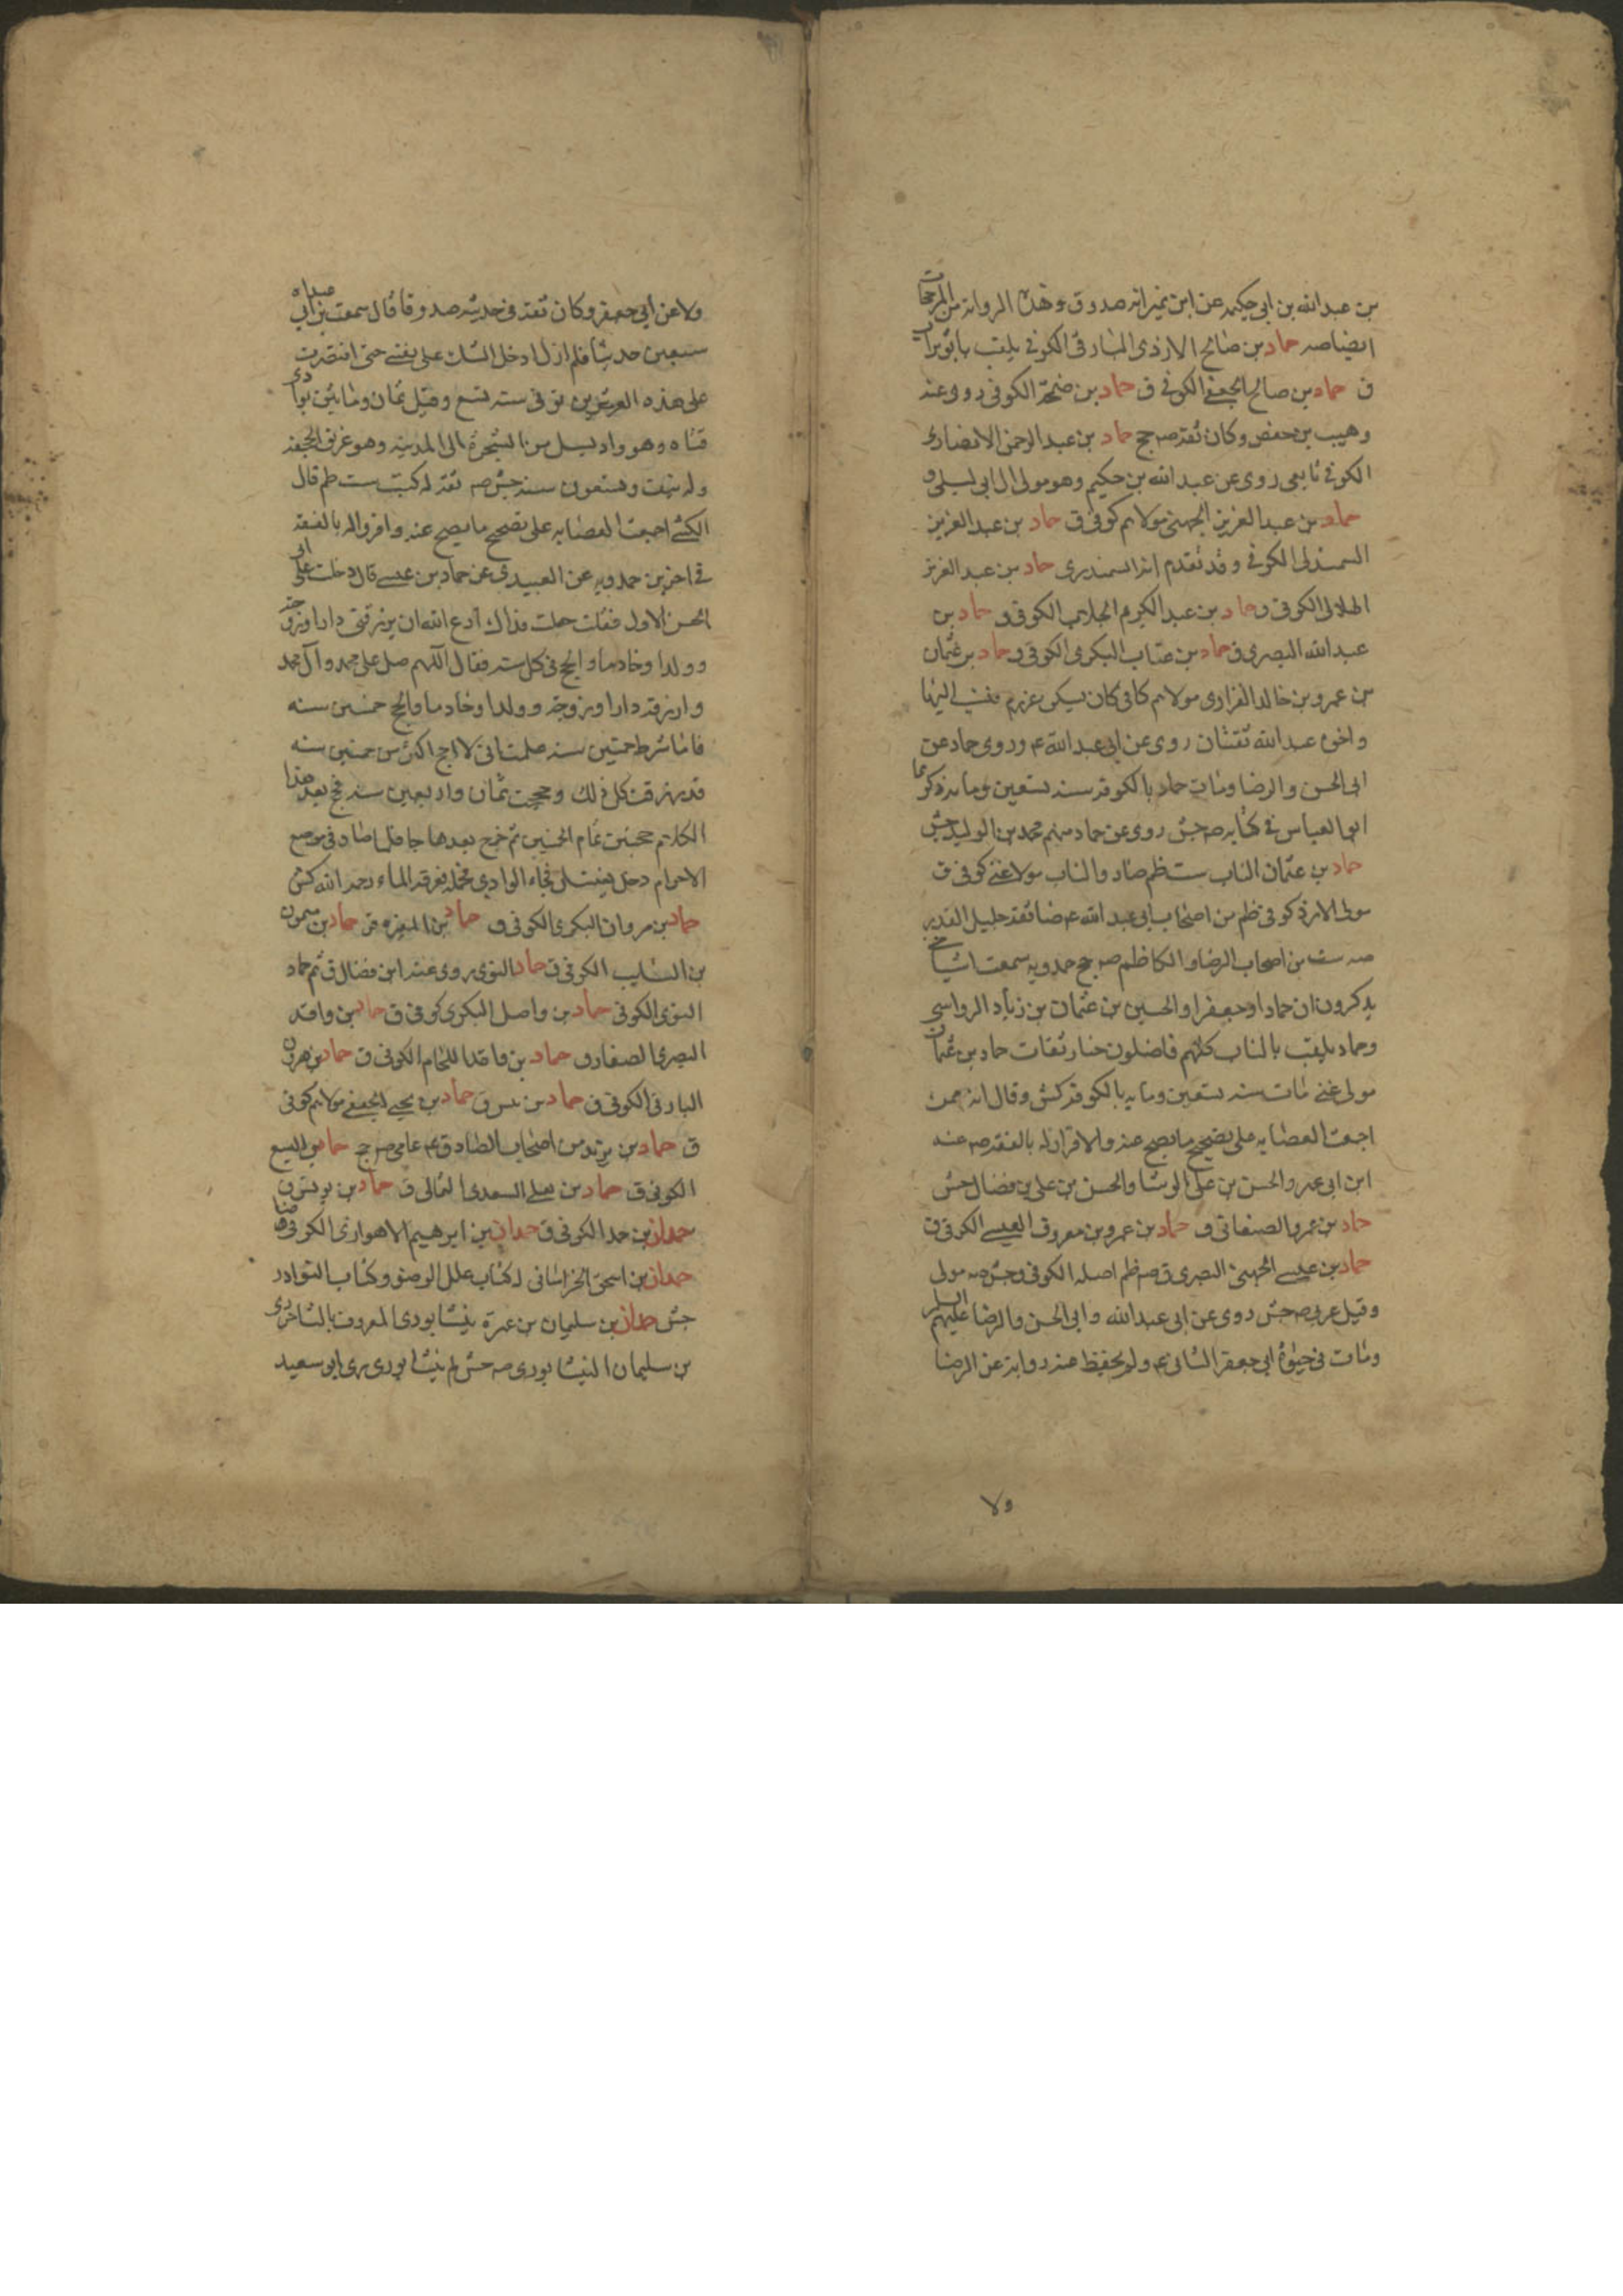 بن عبدالله بن ابى حكيمه عن ابن نمير انه صدوق وهذه الرواية من المرجحات
ايضا صه حماد بن صالح الازدى البارقى الكوفى يلقب بابو تراب
ق حماد بن صالح الجعفى الكوفى ق حماد بن ضمخة الكوفى روى عنه
وهيب بن حفص وكان ثقة صه جح حماد بن عبدالرحمن الانصارى
الكوفى تابعى روى عن عبدالله بن حكيم وهو مولى ال ابى ليلى و
حماد بن عبدالعزيز الجهنى مولاهم كوفى ق حماد بن عبدالعزيز
السمندلى الكوفى وقد تقدم انه السمندرى حماد بن عبدالعزيز
الهلالى الكوفى و حماد بن عبدالكريم الجلاب الكوفى و حماد بن
عبدالله البصرى ق حماد بن عتاب البكرى الكوفى و حماد بن عثمان
بن عمرو بن خالد الفزارى مولاهم كان يسكن عرزم فنسب اليها
واخوه عبدالله ثقتان روى عن ابى عبدالله ع وروى حماد عن
ابى الحسن والرضا ومات حماد بالكوفة سنة تسعين وماية ذكرهما
ابو العباس فى كتابه صه جش روى عن حماد منهم محمد بن الوليد جش
حماد بن عثمان الناب ست ظم ضا والناب مولا غنى كوفى ق
مولى الازد كوفى ظم من اصحاب ابى عبدالله ع ضا ثقة جليل القدر
صه ست من اصحاب الرضا والكاظم صه جح حمدويه سمعت اشياخى
يذكرون ان حمادا وجعفرا والحسين بن عثمان بن زياد الرواسى
وحماد يلقب بالناب كلهم فاضلون خيار ثقات حماد بن عثمان
مولى غنى مات سنة تسعين وماية بالكوفة كش وقال انه ممن
اجمعت العصابه على تصحيح ما يصح عنه والاقرار له بالفقه صه عنه
ابن ابى عمير والحسن بن على الوشا والحسن بن على بن فضال جش
حماد بن عمرو الصنعانى ق حماد بن عمرو بن معروف العبسى الكوفى ق
حماد بن عيسى الجهنى البصرى ق صه ظم اصله الكوفى وجش صه مولى
وقيل عربى صه جش روى عن ابى عبدالله وابى الحسن والرضا عليهم السلم
ومات فى حيوة ابى جعفر الثانى ع ولم يحفظ عنه رواية عن الرضا
ولا
ولا عن ابى جعفر وكان ثقة فى حديثه صدوقا قال سمعت من ابى عبدالله
سبعين حديثا فلم ازل ادخل الشك على نفسى حتى اقتصرت
على هذه العشرين توفى سنة تسع وقيل ثمان وماتين بوادى
قناه وهو واد يسيل من الشجرة الى المدينه وهو غريق الجحفه
وله نيف وتسعون سنة جش صه ثقة له كتب ست ظم قال
الكشى اجمعت العصابه على تصحيح ما يصح عنه واقروا له بالفقه
فى اخرين حمدويه عن العبيدى عن حماد بن عيسى قال دخلت على ابى
الحسن الاول فقلت جعلت فداك ادع الله ان يرزقنى دارا وزوجة
وولدا وخادما والحج فى كل سنة فقال اللهم صل على محمد وآل محمد
وارزقه دارا وزوجة وولدا وخادما والحج خمسين سنه
فلما شرط خمسين سنة علمت انى لا احج اكثر من خمسين سنه
قد رزقت كل ذلك وحججت ثمان واربعين سنة فحج بعد هذا
الكلام حجتين تمام الخمسين ثم خرج بعدها حاجا فلما صار فى موضع
الاحرام دخل يغتسل فجاء الوادى فحمله فغرقه الماء رحمه الله كش
حماد بن مروان البكرى الكوفى ق حماد بن المغيره ق حماد بن ميمون
بن السليب الكوفى ق حماد النوى روى عنه ابن فضال ق ثم حماد
النوى الكوفى حماد بن واصل البكرى كوفى ق حماد بن واقد
البصرى الصفار ق حماد بن واقد اللحام الكوفى ق حماد بن هرون
البارقى الكوفى ق حماد بن ... ق حماد بن يحيى الجعفى مولاهم كوفى
ق حماد بن يزيد من اصحاب الصادق ع عامى صه جح حماد بن اليسع
الكوفى ق حماد بن يعلى السعدى الثمالى ق حماد بن يونس ق
حمدان بن حمد الكوفى ق حمدان بن ابرهيم الاهوازى الكوفى ضا
حمدان بن اسحق الخراسانى له كتاب علل الوضو وكتاب النوادر
جش حمدان بن سليمان بن عميرة نيشابورى المعروف بالتاجر دى
بن سليمان النيشابورى صه جش لم نيشابورى رى ابو سعيد